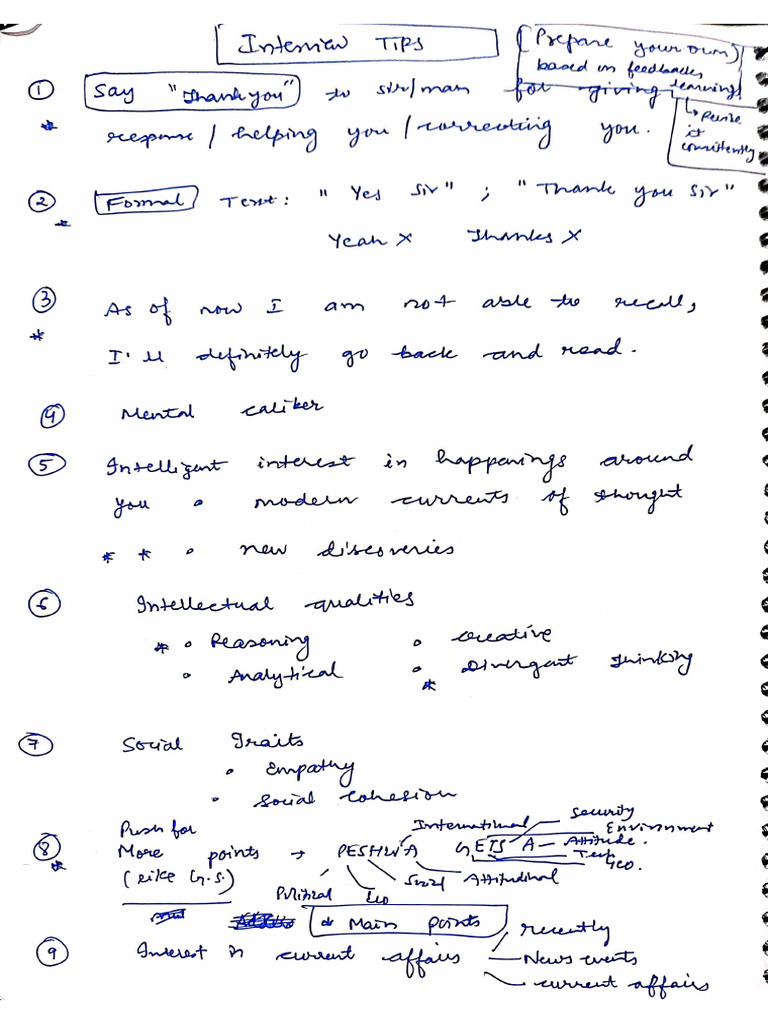 Interview TIPS
(Prepare your own)
based on feedbacks,
learnings
↳ Revise
it
consistently
① Say "Thank you" to sir/mam for giving
* response / helping you / correcting you.
② Formal Text: "Yes Sir" ; "Thank you Sir"
*
Yeah X Thanks X
③ As of now I am not able to recall,
* I'll definitely go back and read.
④ Mental caliber
⑤ Intelligent interest in happenings around
you • modern currents of thought
* * • new discoveries
⑥ Intellectual qualities
* • Reasoning • creative
• Analytical • Divergent thinking
*
⑦ Social Traits
• Empathy
• social cohesion
⑧ Push for
* More points → PESHWA GETS A – Attitude.
(like G.S.)
International Security
Environment
Tech
Geo.
Political Eco Social Attitudinal
* Main points
⑨ Interest in current affairs
recently
News events
current affairs